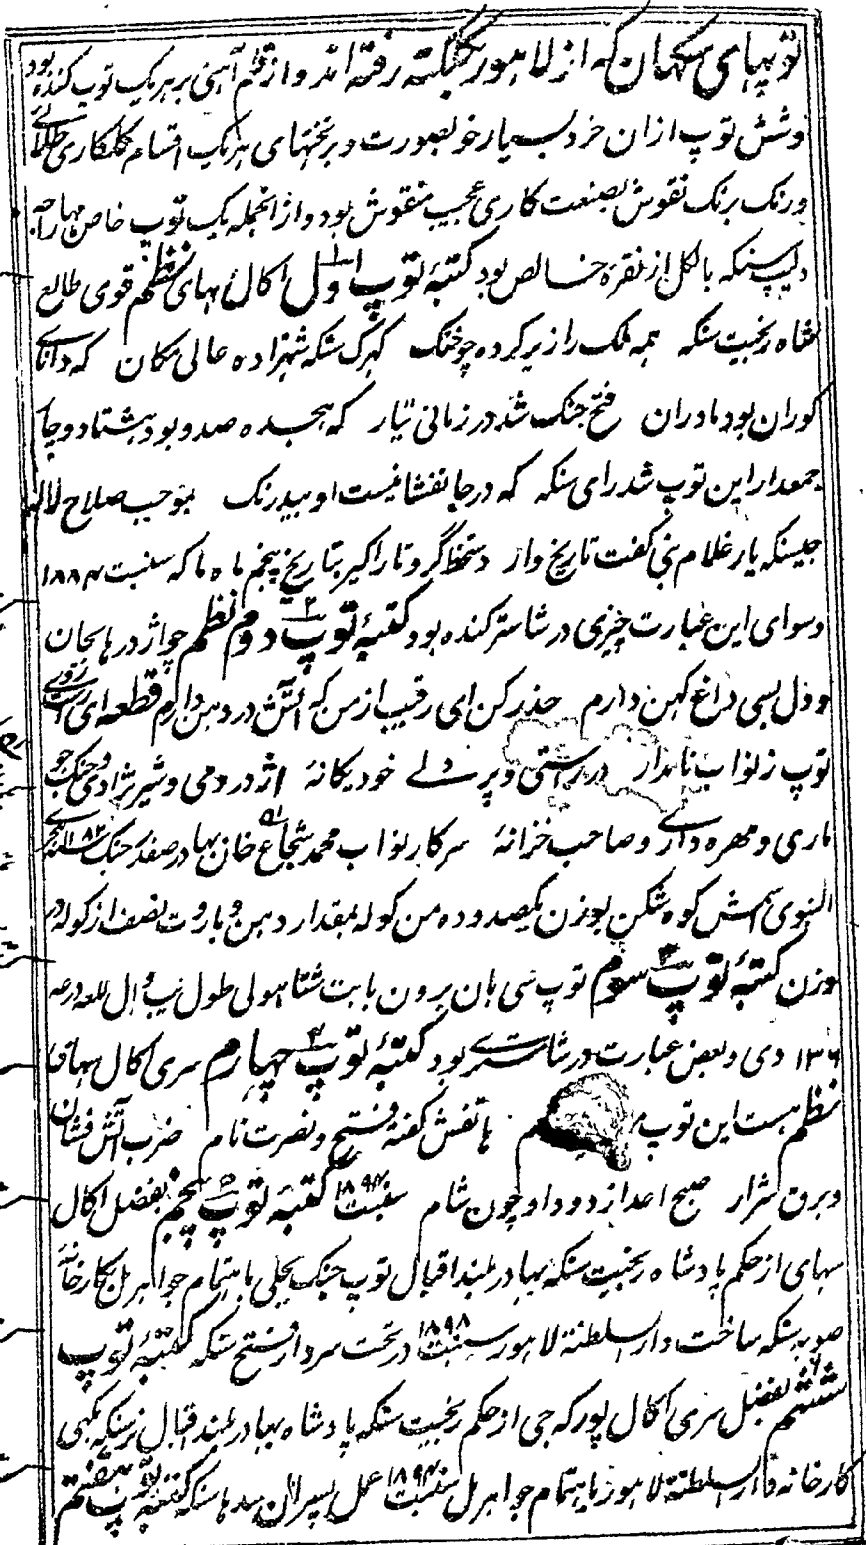 توپهای سکهان که از لاهور بکلکته رفته اند و از قلم آهنی بر هر یک توپ کنده بود
و شش توپ ازان خرد بسیار خوبصورت و برتختهای هر یک اقسام گلکاری طلائے
و رنک برنک نقوش بصنعت کاری عجیب منقوش بود و ازانجمله یک توپ خاص مهاراجه
دلیپ سنکه بالکل از نقره خالص بود کتبهٔ توپ اول اکال سهای نظم قوی طالع
شاه رنجیت سنکه همه ملک را زیر کرده چو خنک کهرک سنکه شهزاده عالی مکان که دانای
کوران بود مادران فتح جنک شد در زمانی تیار که هجده صد و بود هشتاد و چار
جمعدار این توپ شد رای سنکه که در جانفشانیست او بیدرنک بموجب صلاح لاله
جیسنکه یار غلام نبی کفت تاریخ وار دستخط گرو تارا کبر بتاریخ پنجم ماه ماکه سنبت ۱۸۸۴
و سوای این عبارت چیزی در شاستر کنده بود کتبهٔ توپ دوم نظم چو اژدرها بجان
و دل بسی داغ کهن دارم حذر کن ای رقیب از من که آتش در دهن دارم قطعه ای
توپ ز نواب نامدار در راستی و پر دلے خود یکانهٔ اژدر دمی و شیر نژادی و جنک جو
ماری و مهره داری و صاحب خزانهٔ سرکار نواب محمد شجاع خان بهادر صفدر جنک سنه ۱۱۸۲
النبوی کوه شکن بوزن یکصد و ده من کوله بمقدار دهن و باروت نصف از کوله در
وزن کتبهٔ توپ سوم توپ سی بان برون بابت ششتا هولی طول
۱۳۶ دی و بعض عبارت در شاستری بود کتبهٔ توپ چهارم سری اکال سهای
نظم هست این توپ هاتفش کفته فتح و نصرت نام ضرب آتش فشان
و برق شرار صبح اعدا ز دود او چون شام سنبت ۱۸۹۴ کتبهٔ توپ پنجم بفضل اکال
سهای از حکم پادشاه رنجیت سنکه بهادر بلند اقبال توپ جنک بجلی باهتمام جواهر مل بکارخانهٔ
صوبه سنکه ساخت دار السلطنة لاهور سنبت ۱۸۹۸ در تحت سردار فتح سنکه کتبهٔ توپ
ششم بفضل سری اکال پورکه جی از حکم رنجیت سنکه پادشاه بهادر بلند اقبال نرسنکه مکهی
کارخانه دار السلطنة لاهور باهتمام جواهر مل سنبت ۱۸۹۴ عمل پسران سدها سنکه کتبهٔ توپ هفتم